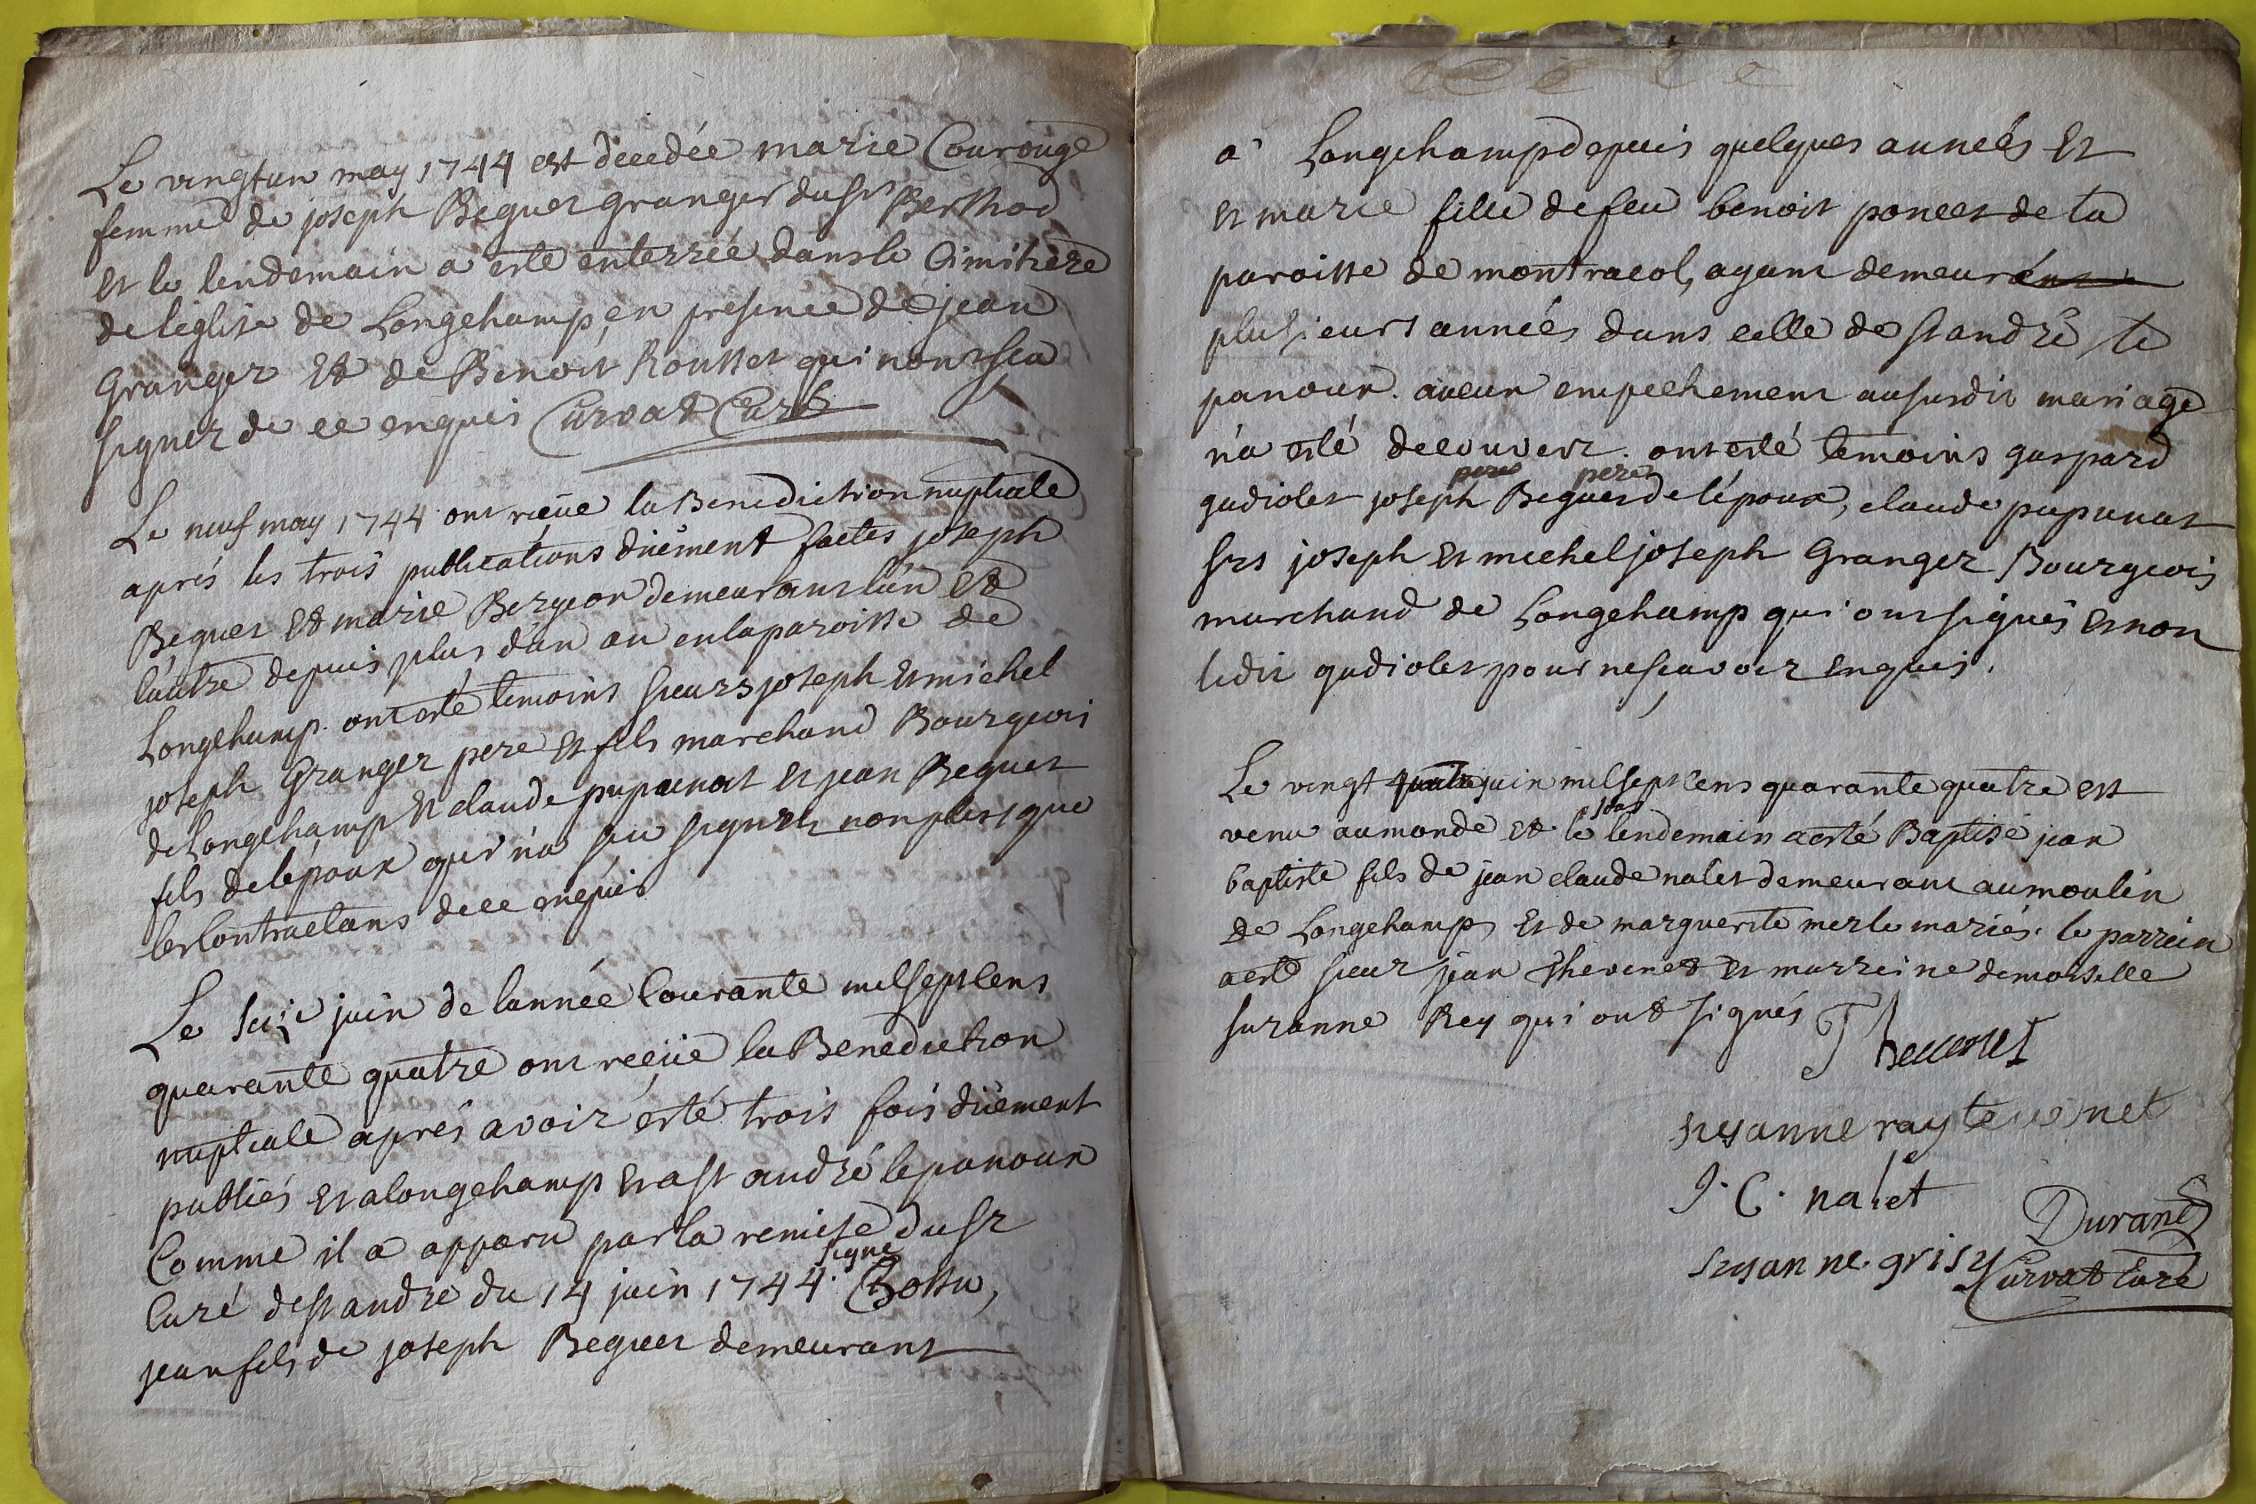 Le vingtun may 1744 est decedée marie Courouge
femme de joseph Beguet granger du sr Berthod
et le lendemain a esté enterrée dans le Cimitiere
de leglise de Longchamp en presence de jean
granger Et de Benoit Rousset qui n'ont sceu
signer de ce enquis Curvat Curé
Le neuf may 1744 ont receüe la Benediction nuptiale
aprés les trois publications düement faites joseph
Beguet Et marie Bergeon demeurans l'un Et
l'autre depuis plus d'un an en la paroisse de
Longchamp. ont esté temoins sieurs joseph et michel
joseph Granger pere et fils marchand Bourgeois
de Longchamp Et claude pupunat et jean Beguet
fils de lépoux qui n'a sceu signer non plus que
les Contractans de ce enquis
Le seize juin de lannée Courante mil sept Cens
quarante quatre ont receüe la Benediction
nuptiale aprés avoir esté trois fois düement
publiés et a longchamp et a st andré le panoux
Comme il a apparu par la remise du sr
Curé de st andré du 14 juin 1744. signé Bossu,
jean fils de joseph Beguet demeurant
a Longchamp depuis quelques années Et
et marie fille de feu benoit poncet de la
paroisse de montracol, ayant demeuré
plusieurs années dans celle de st andré le
panoux. aucun empechement au susdit mariage
n'a esté decouvert. ont esté temoins gaspard
gudiolet joseph Beguet pere de lépoux, claude pupunat
srs joseph et michel joseph Granger Bourgeois
marchand de Longchamp qui ont signés et non
ledit gudiolet pour ne sçavoir enquis.
Le vingt quatre juin mil sept Cens quarante quatre est
venu au monde et le lendemain a esté Baptisé jean
baptiste fils de jean claude nalet demeurant au moulin
de Longchamp Et de marguerite merle mariés. le parrein
a esté sieur jean Thevenet et marreine demoiselle
suzanne Rey qui ont signés
Thevenet
susanne ray tevenet
J. C. nalet
Durand
susanne. grisy Curvat Curé